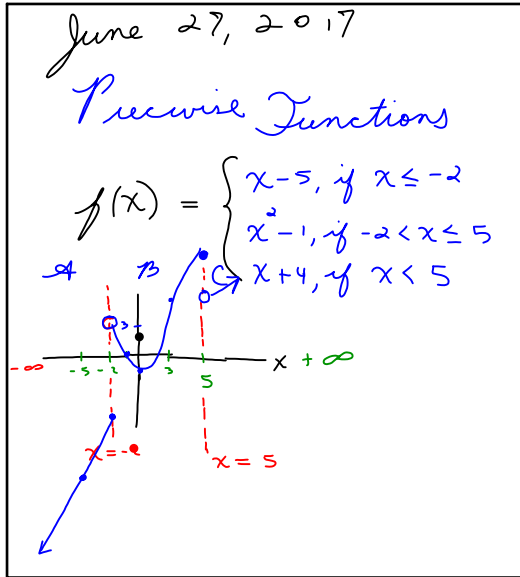 June 27, 2017
Piecwise Functions
f(x) = { x-5, if x ≤ -2
x²-1, if -2 < x ≤ 5
x+4, if x < 5
A B C
3
-∞ -5 -2 3 5 x +∞
x = -2
x = 5